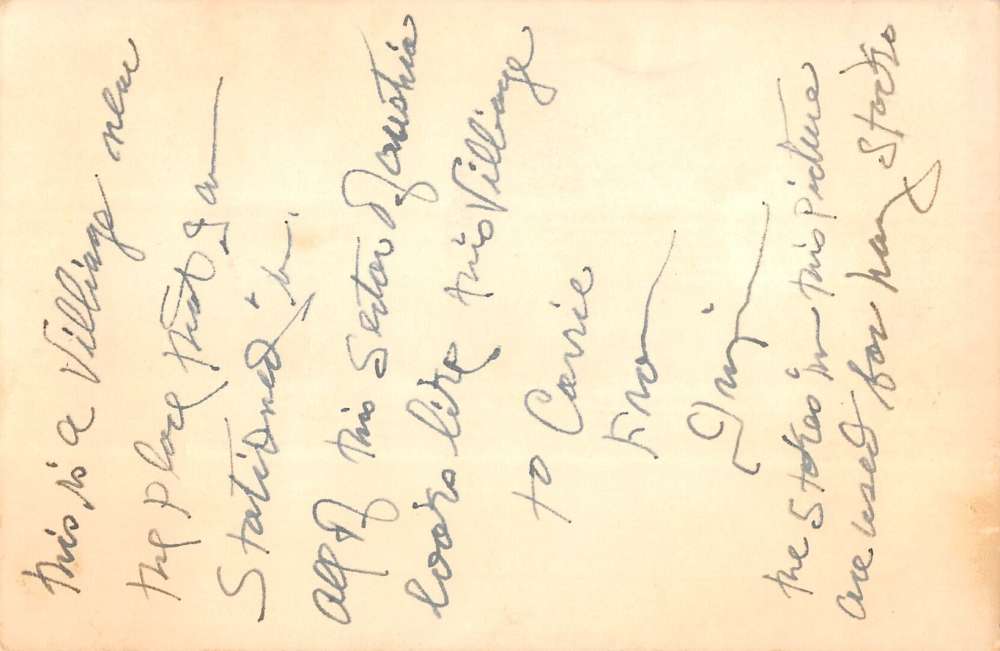 this is a Village near
the place that I am
Stationed in.
all of this Sector of austria
looks like this Village
to Carrie
From
the Stakes in this picture
are used for hay Stacks